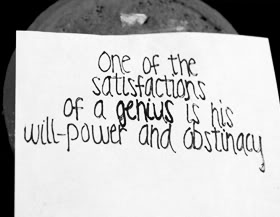 One of the
satisfactions
of a genius is his
will-power and obstinacy